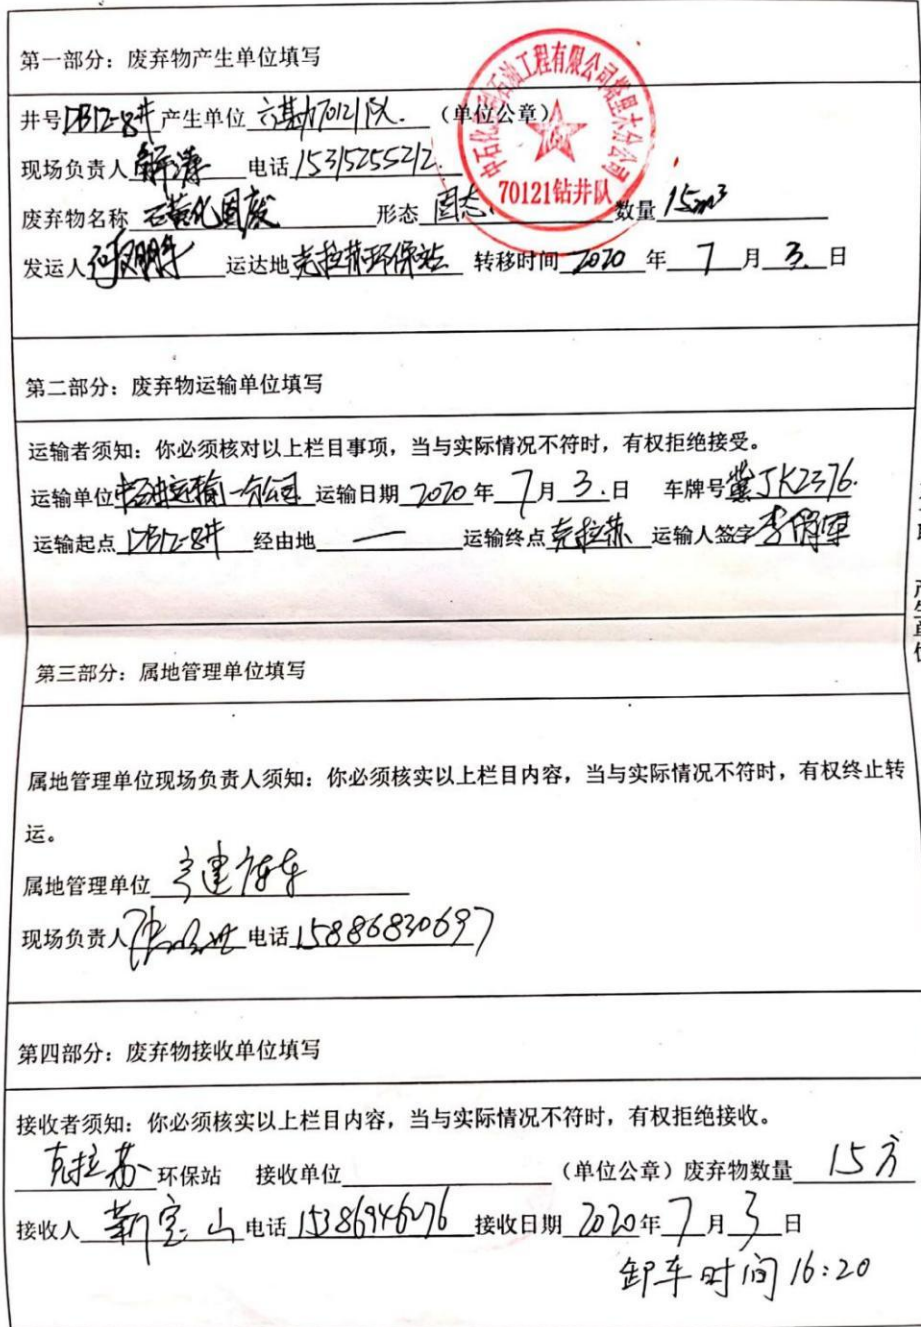 第一部分：废弃物产生单位填写
井号DB12-8井产生单位 70121队. （单位公章）
现场负责人 电话15315255212.
废弃物名称 磺化固废 形态 固态. 数量 15m³
发运人 运达地克拉苏环保站 转移时间 2020 年 7 月 3. 日
中石化 石油工程有限公司塔里木分公司
70121钻井队
第二部分：废弃物运输单位填写
运输者须知：你必须核对以上栏目事项，当与实际情况不符时，有权拒绝接受。
运输单位 运输一分公司 运输日期 2020 年 7 月 3. 日 车牌号冀JK2376.
运输起点 DB12-8井 经由地 — 运输终点 克拉苏 运输人签字
第三部分：属地管理单位填写
属地管理单位现场负责人须知：你必须核实以上栏目内容，当与实际情况不符时，有权终止转
运。
属地管理单位
现场负责人 电话 15886830697
第四部分：废弃物接收单位填写
接收者须知：你必须核实以上栏目内容，当与实际情况不符时，有权拒绝接收。
克拉苏 环保站 接收单位 （单位公章）废弃物数量 15方
接收人 靳宝山 电话 接收日期 2020 年 7 月 3 日
卸车时间 16:20
产生单位